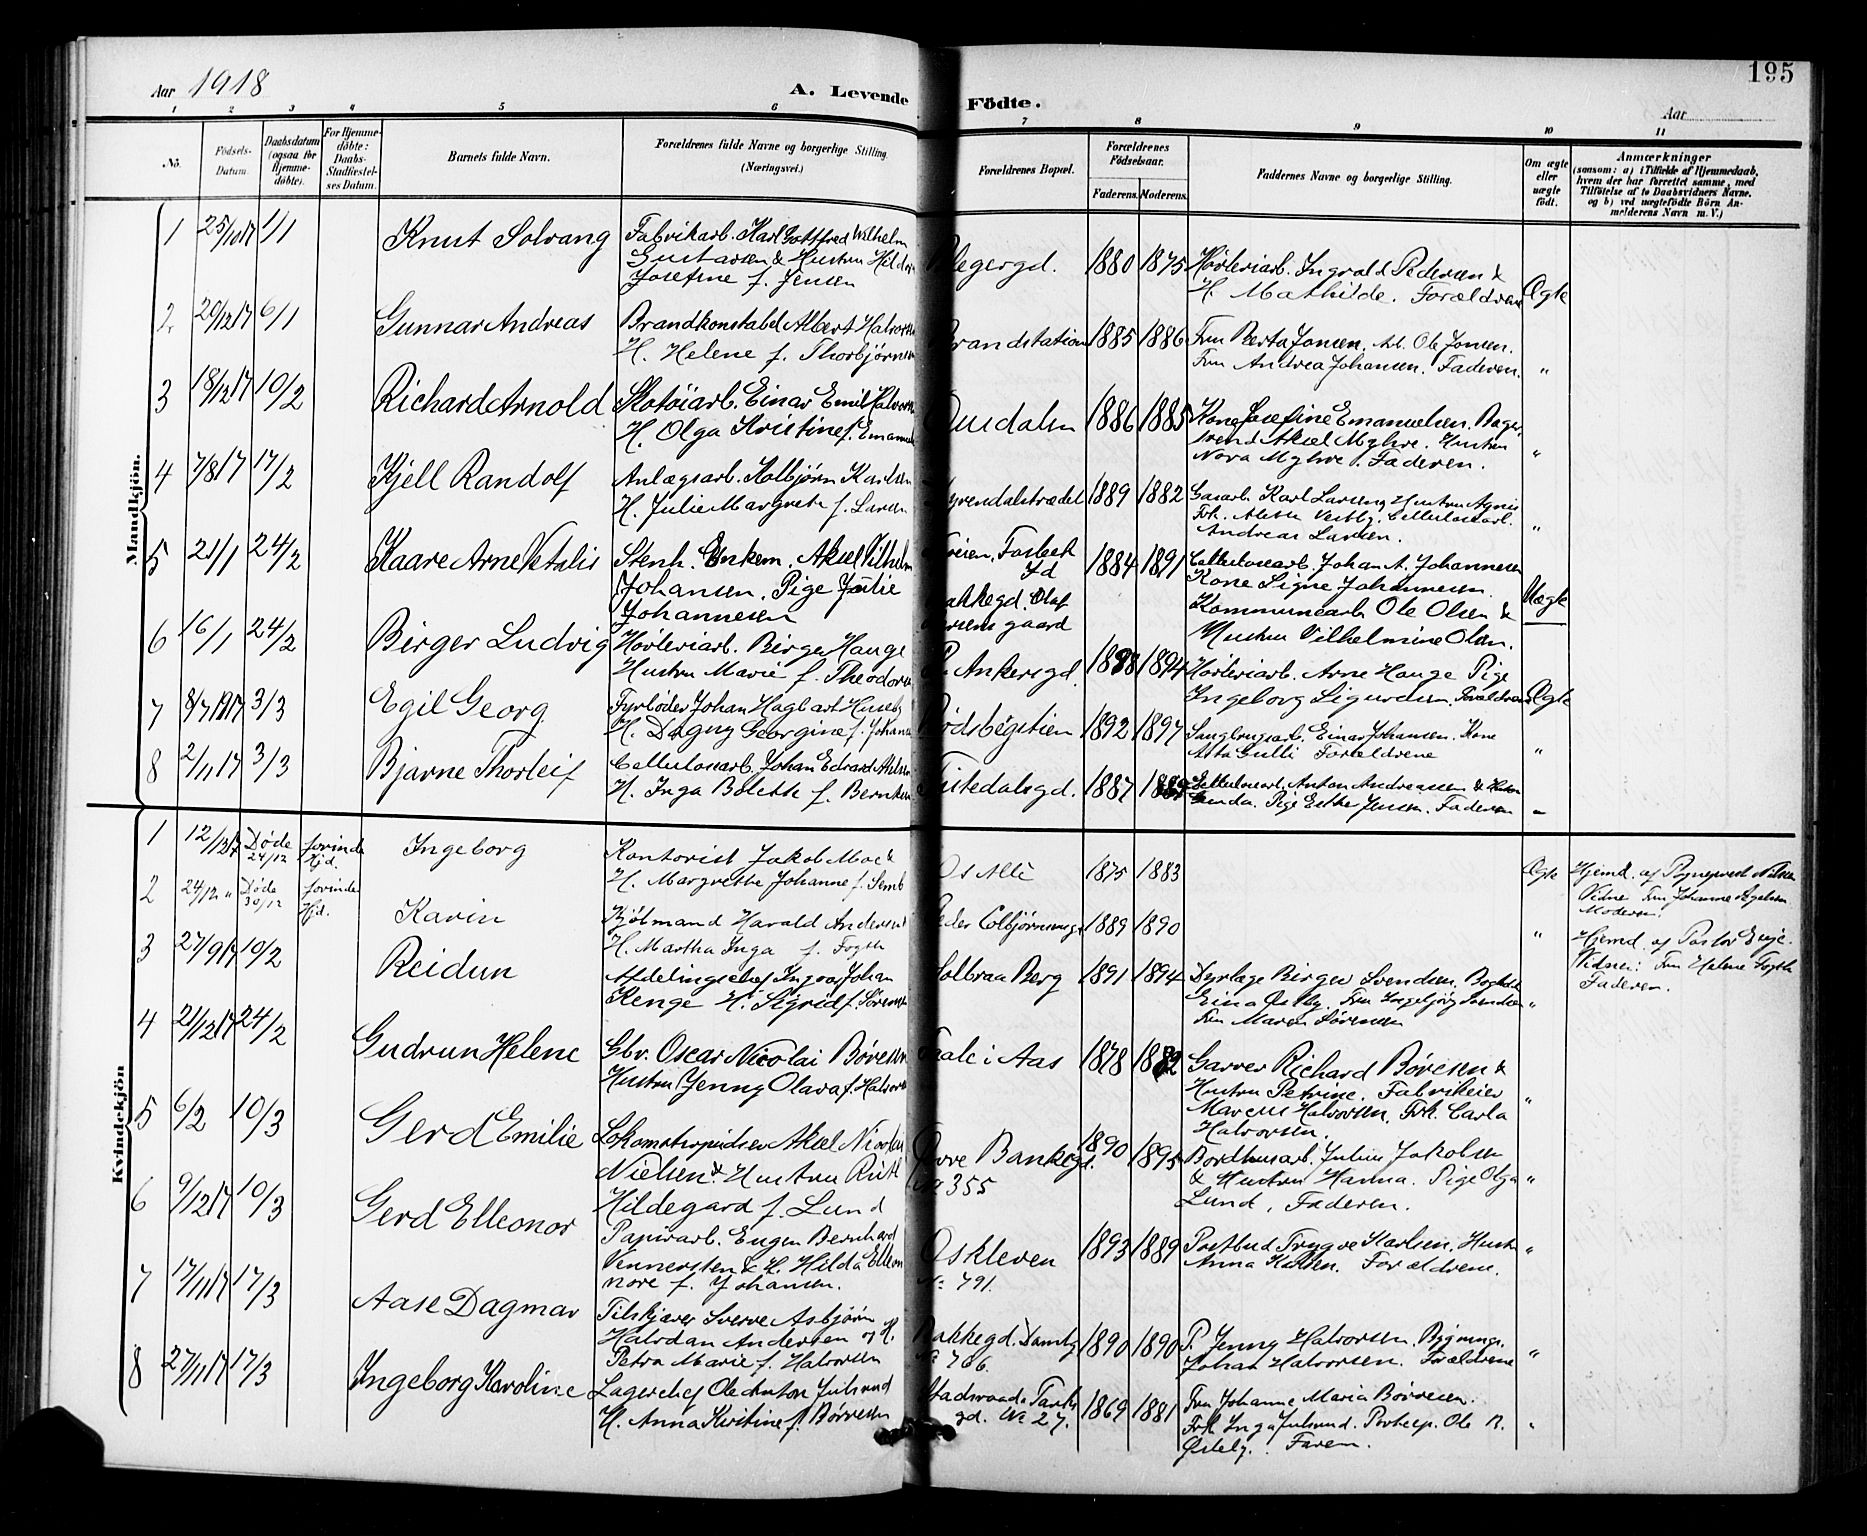 195
Aar 1918
A. Levende Födte.
Aar
1 2 3 4 5 6 7 8 9 10 11
No.
Födsels-Datum.
Daabsdatum (ogsaa for Hjemme-döbte).
For Hjemme-döbte: Daabs-Stadfæstel-ses Datum.
Barnets fulde Navn.
Forældrenes fulde Navne og borgerlige Stilling. (Næringsvei.)
Forældrenes Bopæl.
Forældrenes Födselsaar.
Faderens. Moderens.
Faddernes Navne og borgerlige Stilling.
Om ægte eller uægte födt.
Anmærkninger
(saasom: a) i Tilfælde af Hjemmedaab, hvem der har forrettet samme, med Tilföielse af to Daabsvidners Navne. og b) ved uægtefödte Börn An-melderens Navn m. V.)
Mandkjön.
1 25/10 17 1/1 Knut Solvang
Fabrikarb. Karl Gottfred Wilhelm
Gustavsen & Hustru Hilda
Josefine f. Jensen
1880 1875 Høvleriarb. Ingvald Pedersen &
H. Mathilde. Forældrene Ægte
2 20/12 17 6/1 Gunnar Andreas
Brandkonstabel Albert Halvorsen
H. Helene f. Thorbjørnsen
Brandstation 1885 1886 Fru Berta Jonsen, Arb. Ole Jonsen.
Fru Andrea Johansen. Faderen. "
3 18/12 17 10/2 Richard Arnold
Skotöiarb. Einar Emil Halvorsen
H. Olga Kristine f. Emanuels
1886 1885 Kone Josefine Emanuelsen. Bager
svend Aksel Myhre. Hustru
Nora Myhre. Faderen. "
4 7/8 17 17/2 Kjell Randolf
Anlægsarb. Kolbjørn Karlsen
H. Julie Margrethe f. Larsen
1889 1882 Gasarb. Karl Larsen, Hustru Agnes
Andreas Larsen. "
5 21/1 24/2 Kaare Arne Vitalis
Stenh. Enkem. Aksel Vilhelm
Johansen. Pige Julie
Johannesen
1884 1891 Cellulosearb. Johan A. Johannesen
Kone Signe Johannesen.
Kommunearb Ole Olsen &
Hustru Vilhelmine Olsen. Uægte
6 16/1 24/2 Birger Ludvig
Høvleriarb. Birger Hauge
Hustru Marie f. Theodorsen
P. Ankersgd. 1888 1894 Høvleriarb. Arne Hauge Pige
Ingeborg Sigurdsen. Forældrene Ægte
7 8/7 1917 3/3 Egil Georg
Fyrbøder Johan Hagbart Huseby
H. Dagny Georgine f. Johansen
Rödsbergstien 1892 1897 Einar Johansen. Kone
Asta Gulli Forældrene "
8 2/11 17 3/3 Bjarne Thorleif
Cellulosearb. Johan Edvard
H. Inga Bolette f. Berntsen
Tistedalsgd. 1887 Cellulosearb. Anton Andreassen &
Pige Esther Jensen. Faderen "
Kvindekjön
1 12/12 17 Døde 24/12 forinde Hjd. Ingeborg
Kontorist Jakob Moe &
H. Margrethe Johanne f. Semb
Os Allé 1875 1883 Ægte Hjemd. af
Vidne Fru Johanne
Moderen.
2 24/12 " Døde 30/12 forinde Hjd. Karin
Kjøbmand Harald Andersen
H. Martha Inga f. Fogth
Peder Colbjørnsensgt 1889 1890 " Hjemd. af Pastor
Vidner: Fru Helene Fogth
Faderen.
3 27/9 17 10/2 Reidun
Afdelingschef Ingvar Johan
Kenge H. Sigrid f. Sørensen
Solbraa Berg 1891 1894 Dyrlæge Birger Svendsen.
Fru Ingebjørg Svendsen
Fru Maren Sørensen "
4 21/12 17 24/2 Gudrun Helene
Gbr. Oscar Nicolai Børresen
Hustru Jenny Olava f. Halvorsen
i Aas 1878 1882 Garver Richard Børresen &
Hustru Petrine. Fabrikeier
Marcus Halvorsen. Frk. Carla
Halvorsen. "
5 6/2 10/3 Gerd Emilie
Lokomotivpudser Aksel Nicolai
Nielsen & Hustru Ruth
Hildegard f. Lund
Øvre Bankegd.
No 355 1890 1895 Bordhusarb. Julius Jakobsen
& Hustru Hanna. Pige Olga
Lund, Faderen. "
6 9/12 17 10/3 Gerd Elleonor
Papirarb. Eugen Bernhard
Vennersten & H. Hilda Elleo
nore f. Johansen.
Oskleven
No 791. 1893 1889 Postbud Trygve Karlsen. Hustr
Anna Karlsen. Forældrene. "
7 17/11 17 17/3 Aase Dagmar
Tilskjærer Sverre Asbjørn
Halvdan Andersen og H.
Petra Marie f. Halvorsen
Bakkegd. Damhg
No 706. 1890 1890 P. Jenny Halvorsen. Bygnings.
Johan Halvorsen. Forældrene "
8 27/11 17 17/3 Ingeborg Karoline
Lagerchef Ole Anton Julsrud
H. Anna Kristine f. Børresen
gd. No 27. 1869 1881 Fru Johanne Maria Børresen.
Frk Inga Julsrud. Postexp. Ole R.
Østeby. Faren. "